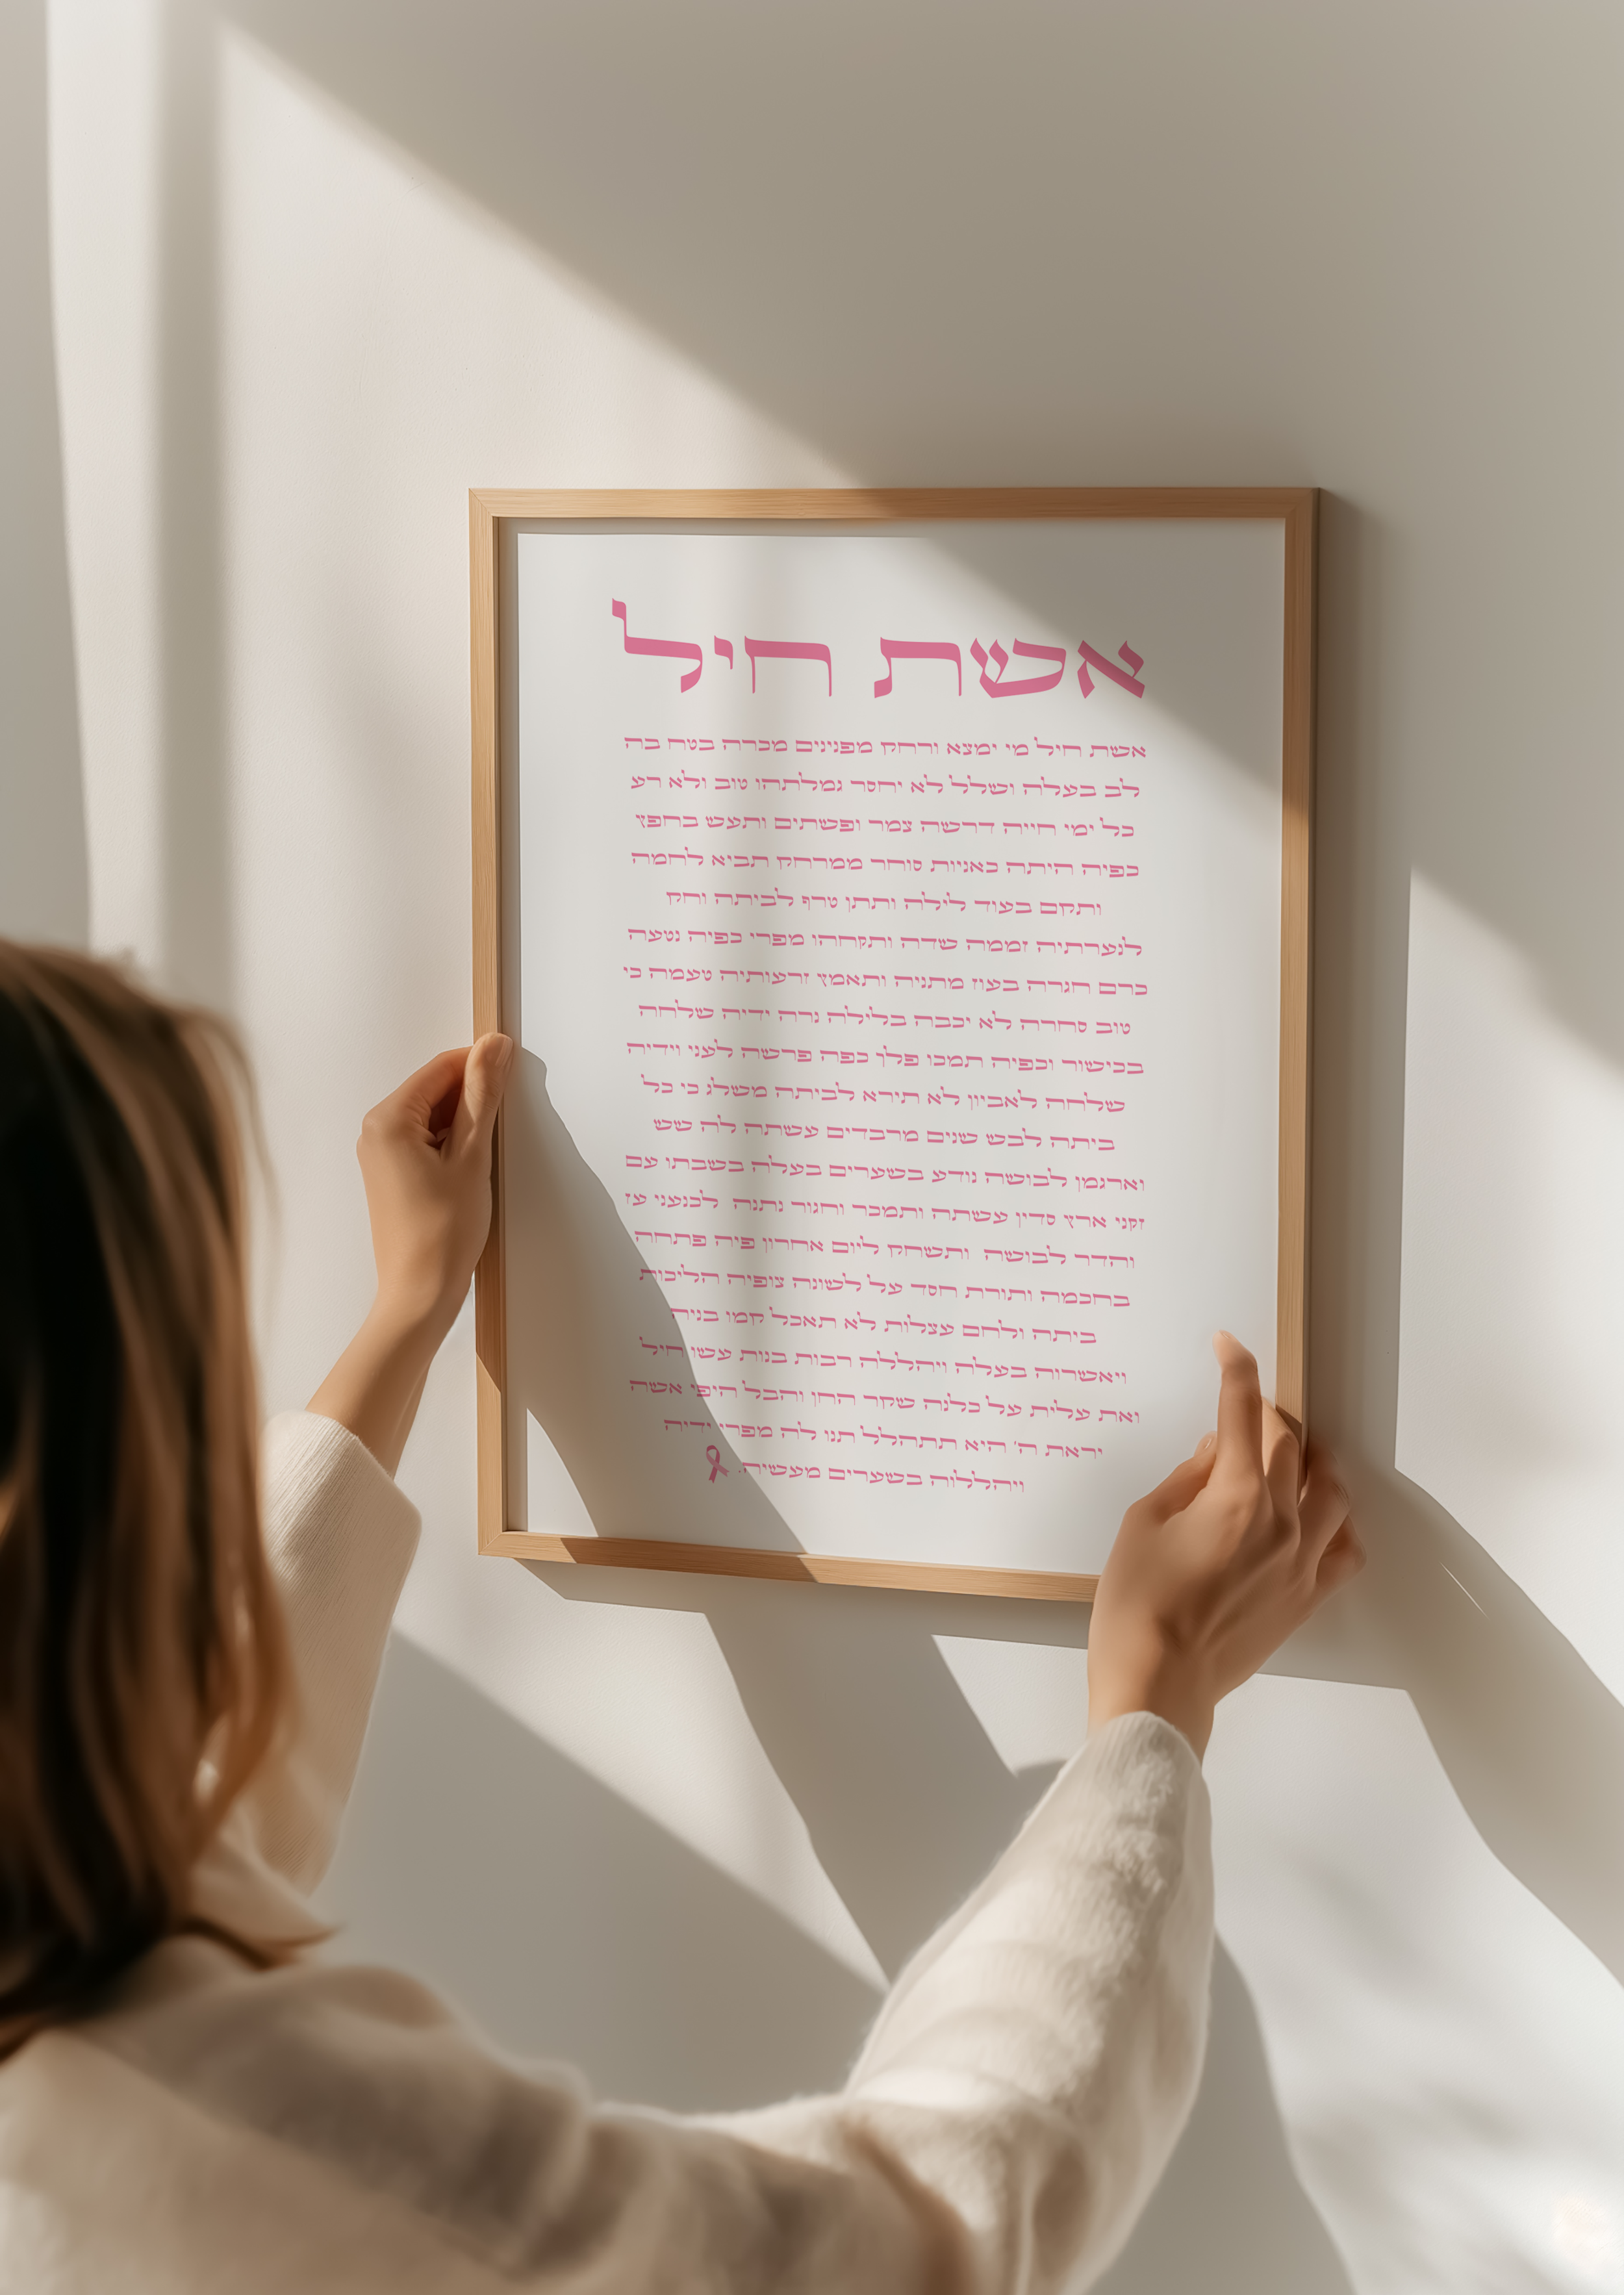 אשת חיל
אשת חיל מי ימצא ורחק מפנינים מכרה בטח בה
לב בעלה ושלל לא יחסר גמלתהו טוב ולא רע
כל ימי חייה דרשה צמר ופשתים ותעש בחפץ
כפיה היתה כאניות סוחר ממרחק תביא לחמה
ותקם בעוד לילה ותתן טרף לביתה וחק
לנערתיה זממה שדה ותקחהו מפרי כפיה נטעה
כרם חגרה בעוז מתניה ותאמץ זרעותיה טעמה כי
טוב סחרה לא יכבה בלילה נרה ידיה שלחה
בכישור וכפיה תמכו פלך כפה פרשה לעני וידיה
שלחה לאביון לא תירא לביתה משלג כי כל
ביתה לבש שנים מרבדים עשתה לה שש
וארגמן לבושה נודע בשערים בעלה בשבתו עם
זקני ארץ סדין עשתה ותמכר וחגור נתנה לכנעני עז
והדר לבושה ותשחק ליום אחרון פיה פתחה
בחכמה ותורת חסד על לשונה צופיה הליכות
ביתה ולחם עצלות לא תאכל קמו בניה
ויאשרוה בעלה ויהללה רבות בנות עשו חיל
ואת עלית על כלנה שקר החן והבל היפי אשה
יראת ה' היא תתהלל תנו לה מפרי ידיה
ויהללוה בשערים מעשיה.